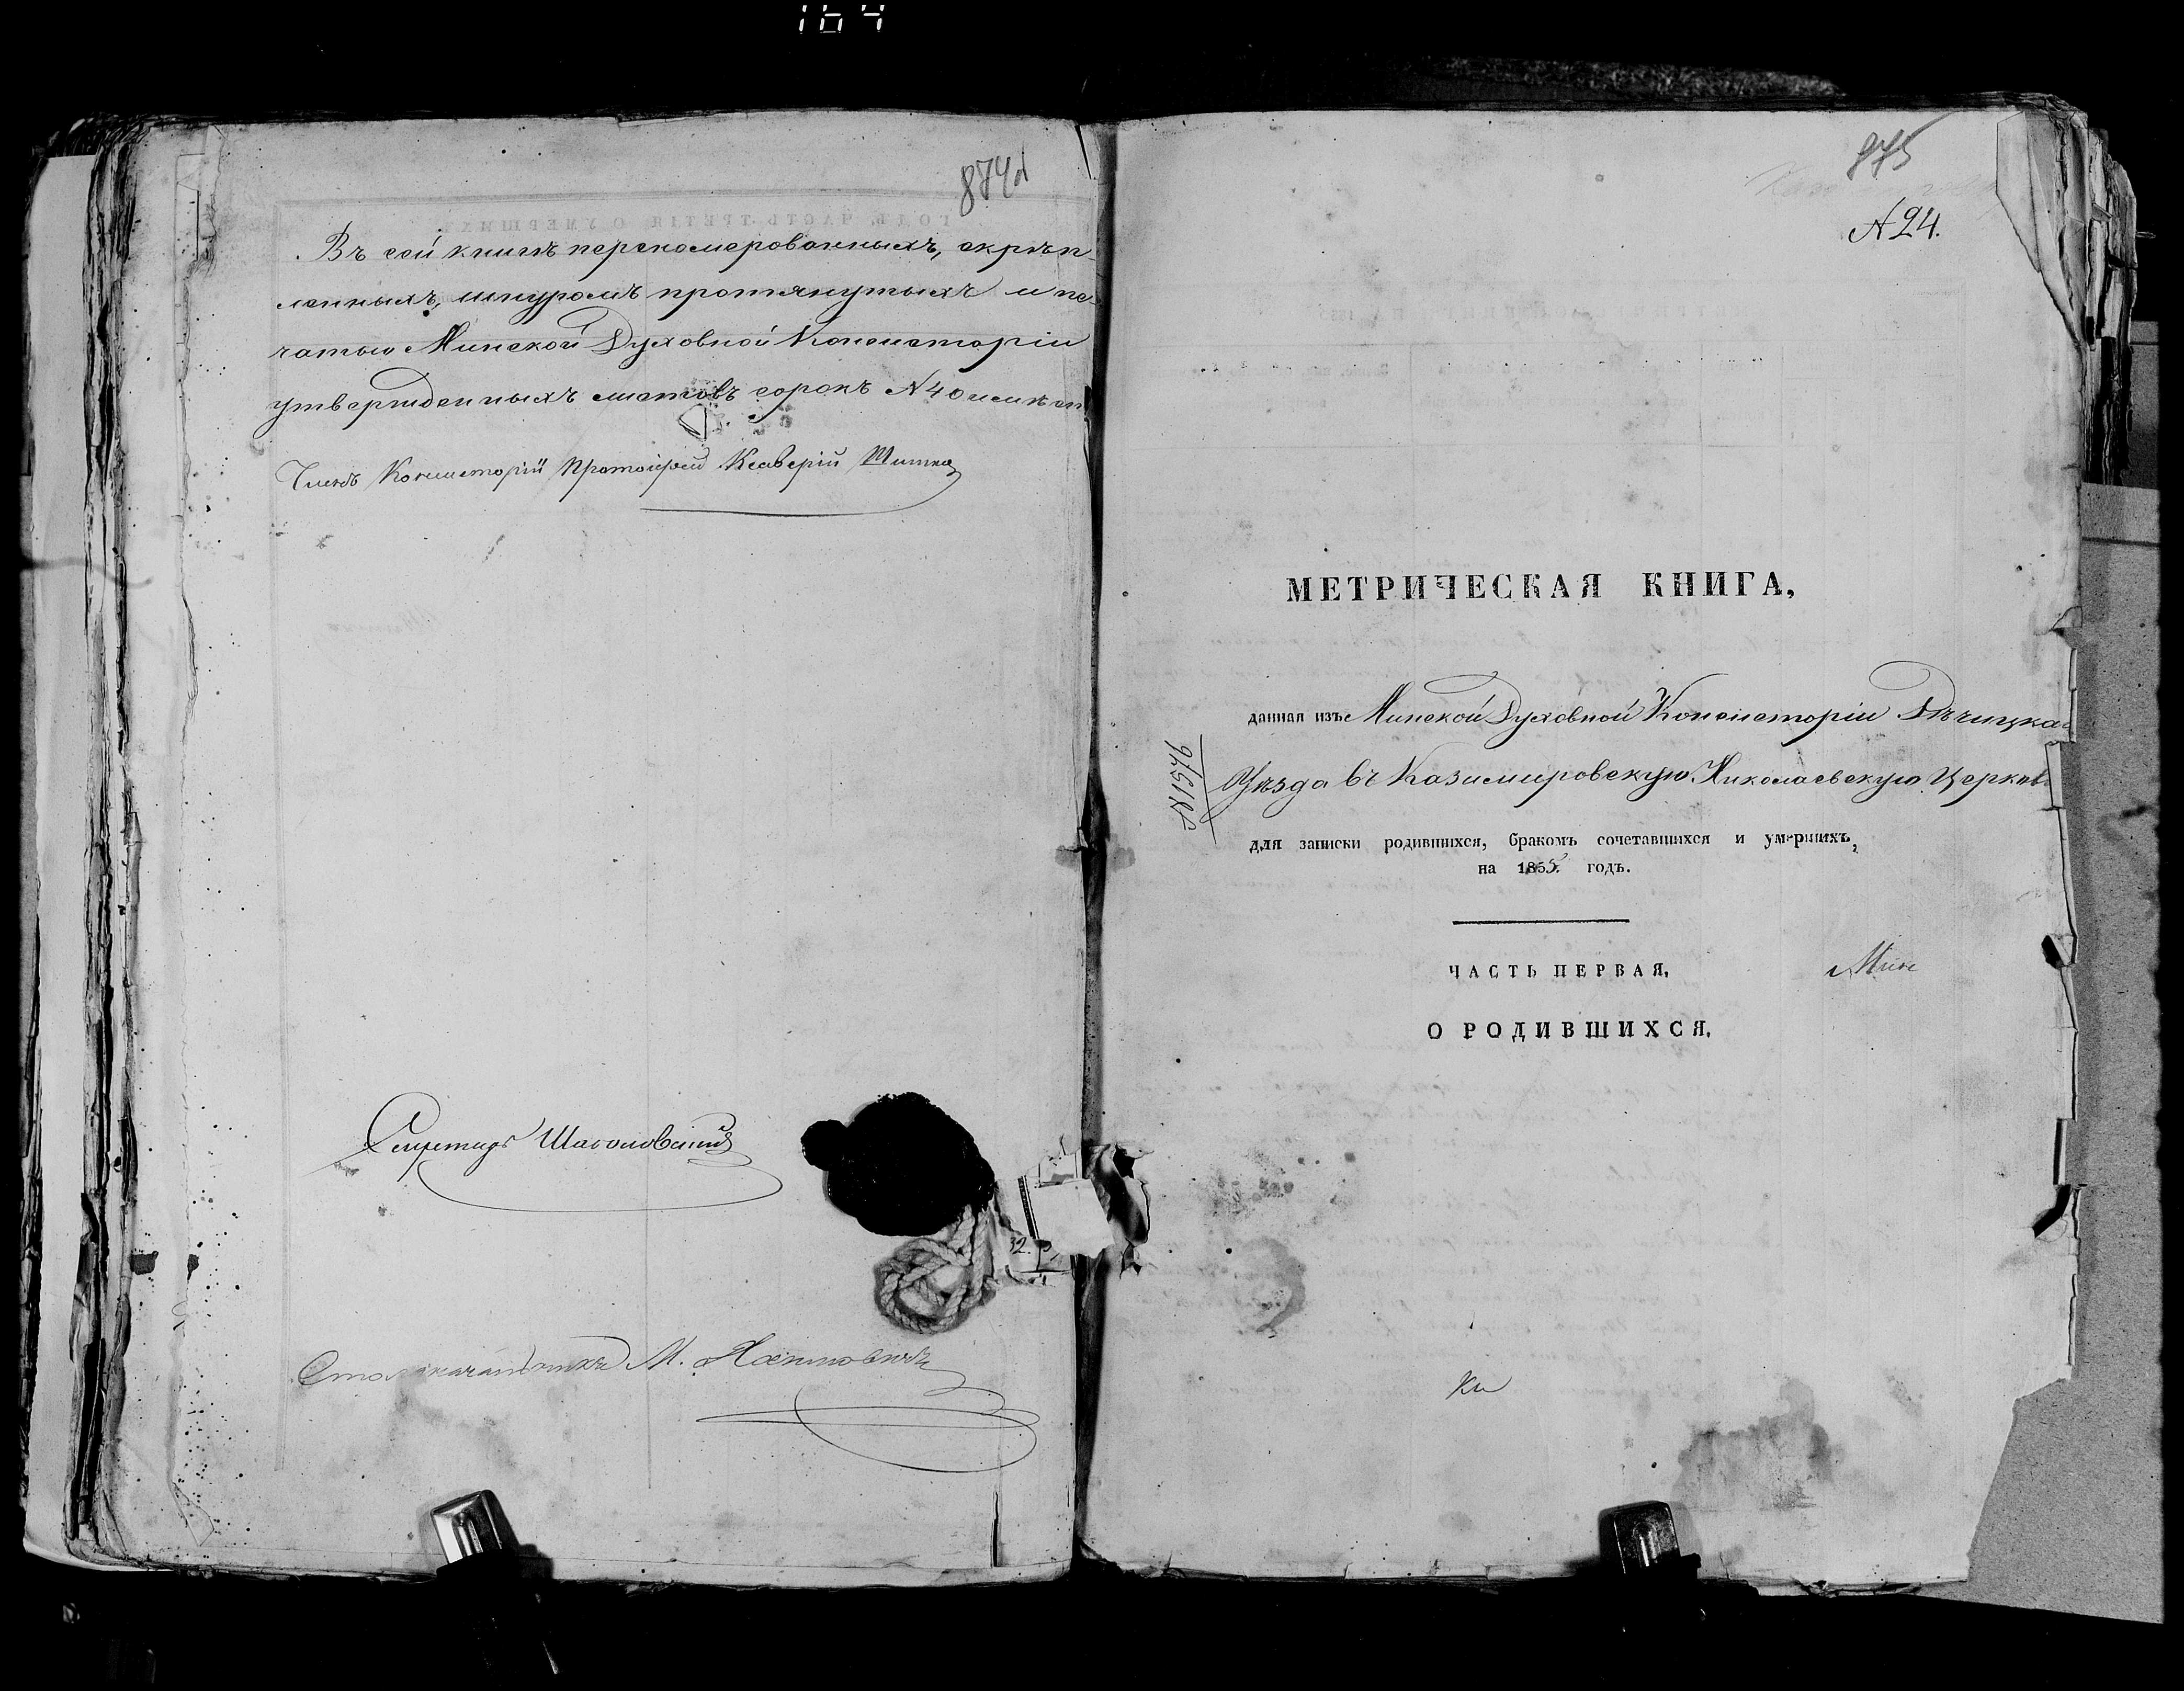 164
874
Въ сей книгѣ перепомерованныхъ, скрѣп-
ленныхъ, шнуромъ протянутыхъ и пе-
чатью Минской Духовной Консисторіи
утвержденныхъ листовъ сорокъ N 40
Членъ Консисторіи Протоіерей Ксаверій
Секретарь
Столоначальникъ М.
875
N 24.
МЕТРИЧЕСКАЯ КНИГА,
данная изъ Минской Духовной Консисторіи
Уѣзда въ Казимировскую Николаевскую Церковь
для записки родившихся, бракомъ сочетавшихся и умершихъ,
на 1855 годъ.
ЧАСТЬ ПЕРВАЯ,
О РОДИВШИХСЯ.